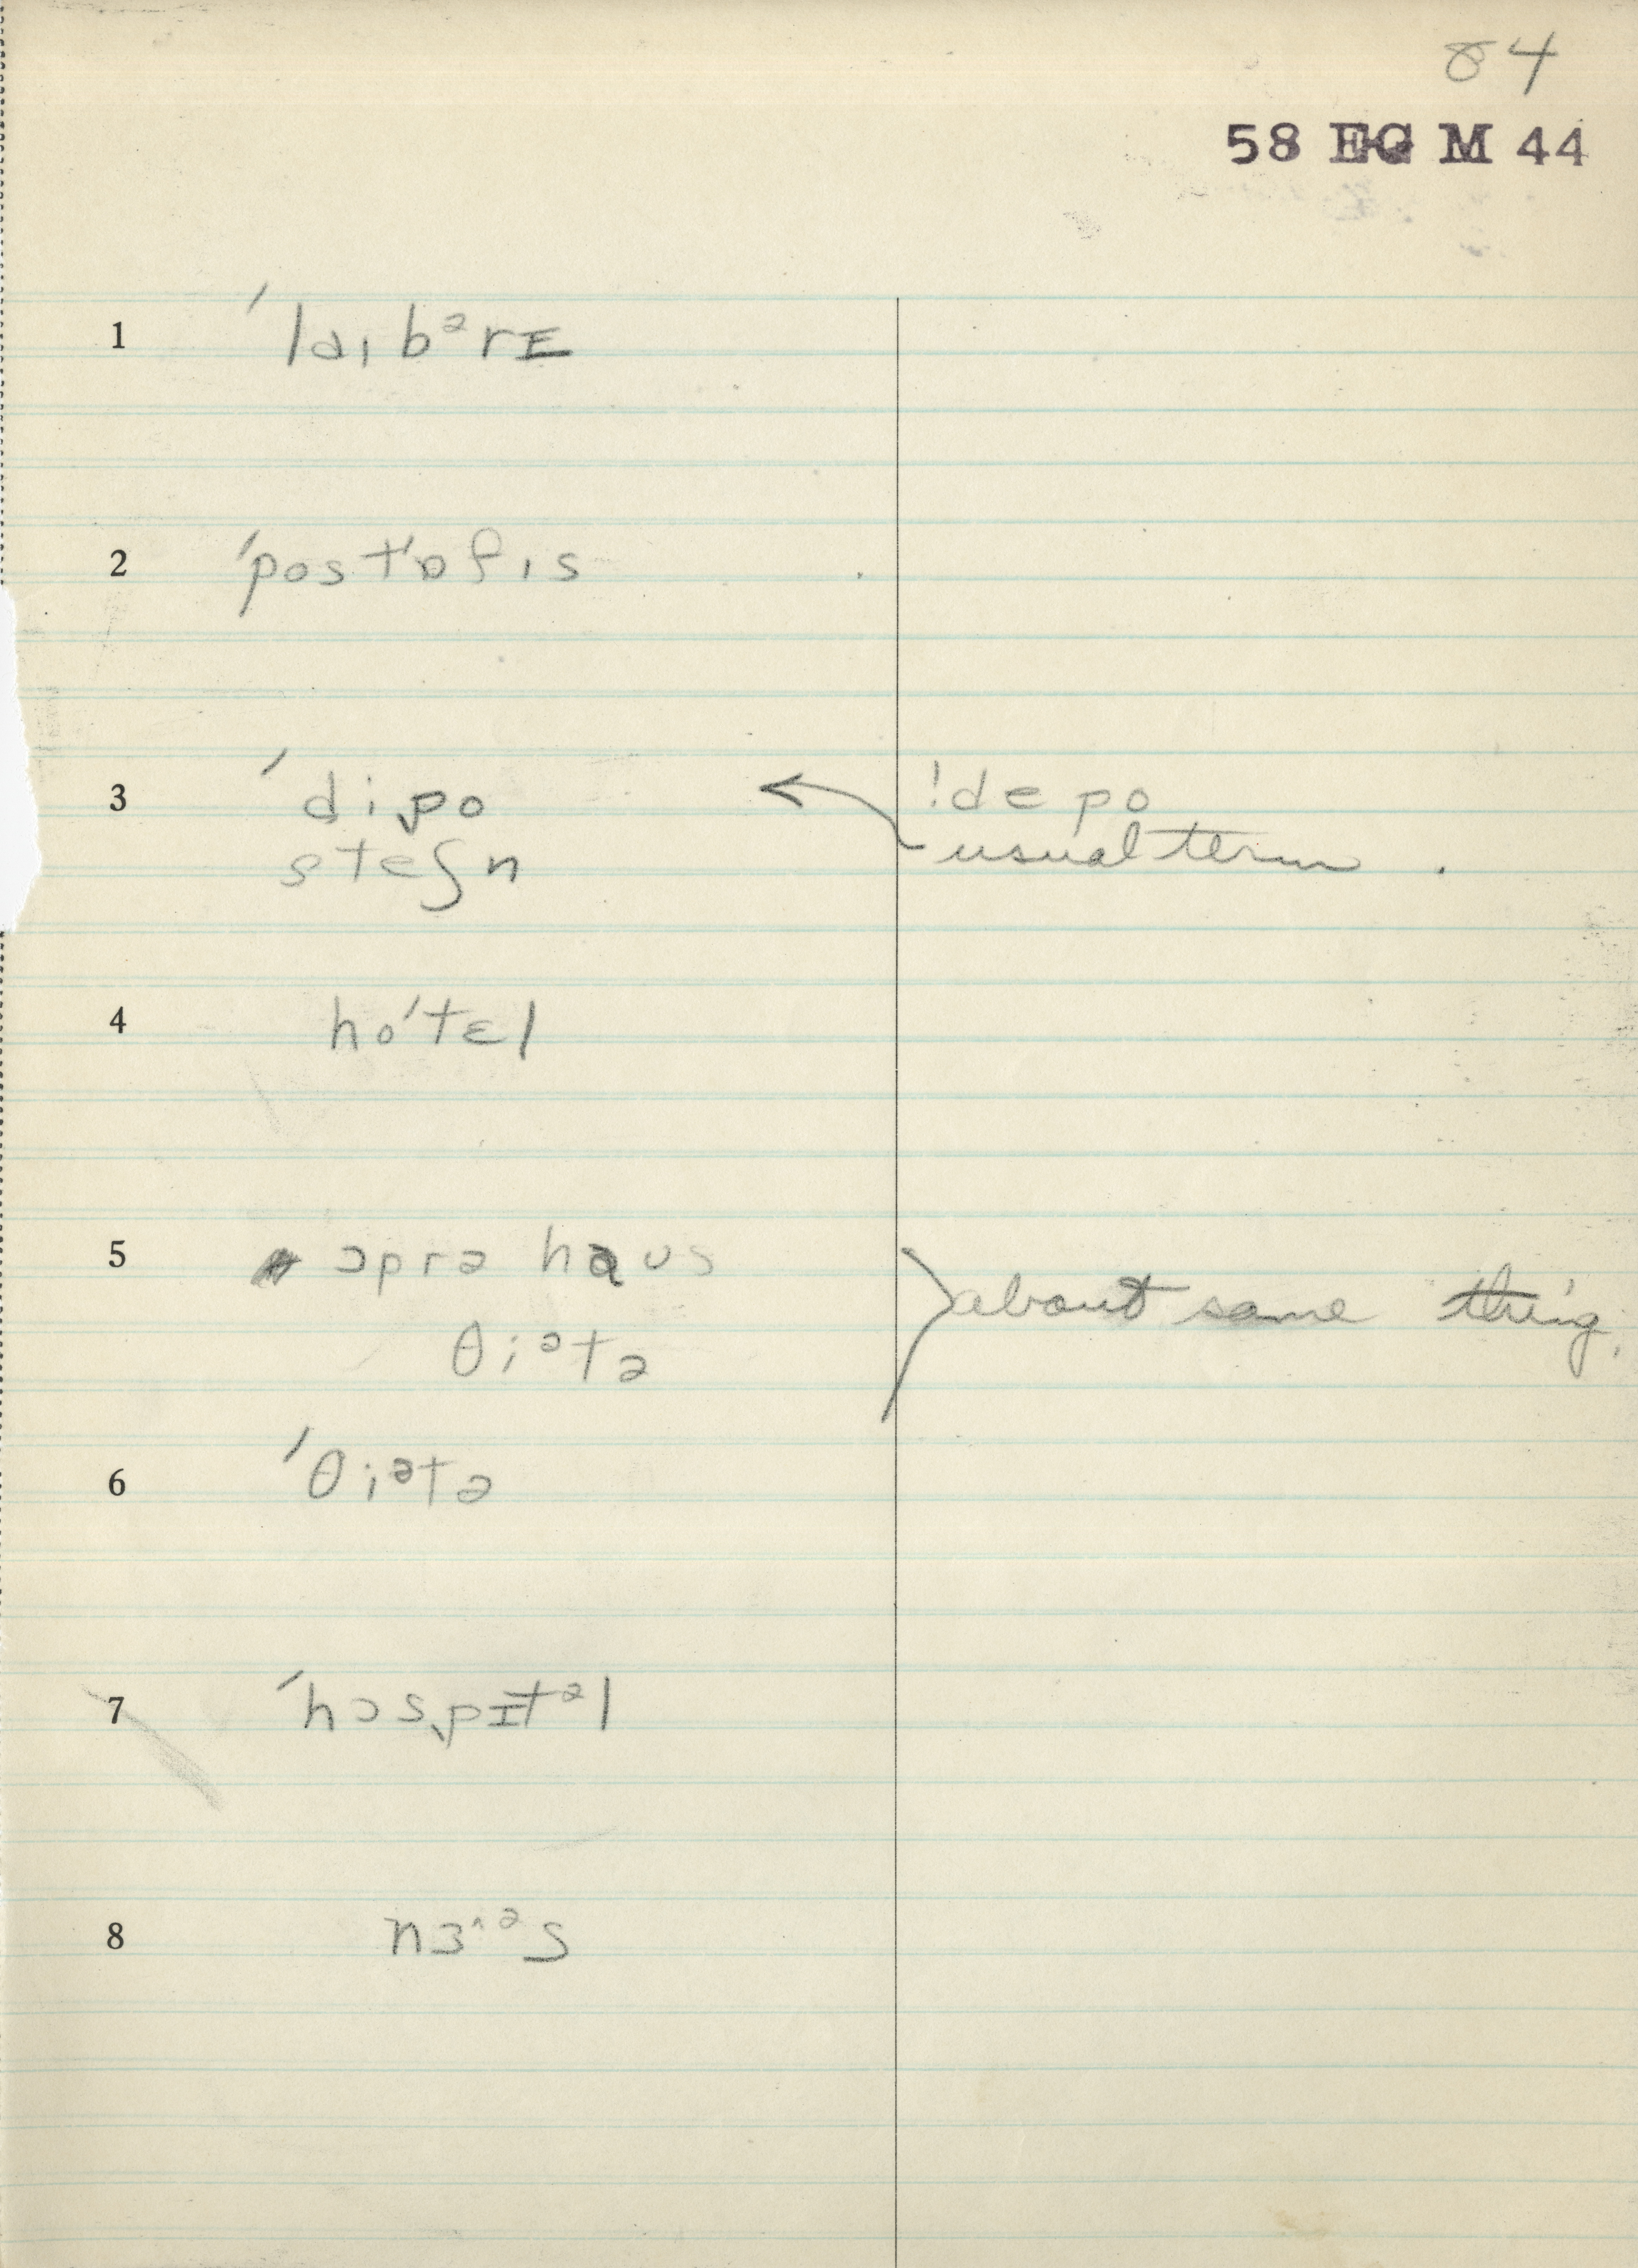 84
58 EG M 44
1 ˈlaɪbᵊrɪ
2 ˈpostˈɒfɪs
3 ˈdipo !depo
steʃn usual term.
4 hoˈtɛl
5 ɔprə haʊs about same thing.
θiᵊtə
6 ˈθiᵊtə
7 ˈhɔspɪtᵊl
8 nɜ^ᵊs